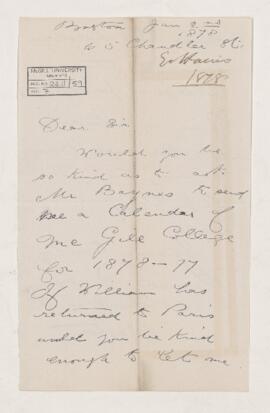 Boston Jan 2nd
1878
45 Chandler St.
E. Harris
1878
McGILL UNIVERSITY
ARCHIVES
ACC. NO. 2211 59
REF. 7
Dear Sir
Would you be
so kind as to ask
Mr Baynes to send
me a Calendar of
Mc Gill College
for 1878-77
If William has
returned to Paris
would you be kind
enough to let me